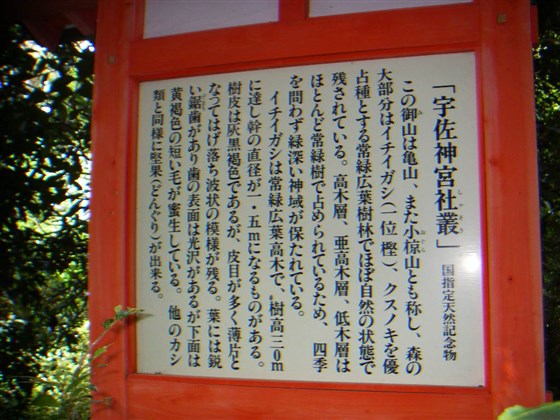 「宇佐神宮社叢」 国指定天然記念物
この御山は亀山、また小椋山とも称し、森の
大部分はイチイガシ(一位樫)、クスノキを優
占種とする常緑広葉樹林でほぼ自然の状態で
残されている。高木層、亜高木層、低木層は
ほとんど常緑樹で占められているため、四季
を問わず緑深い神域が保たれている。
イチイガシは常緑広葉高木で、樹高三0m
に達し幹の直径が一・五mになるものがある。
樹皮は灰黒褐色であるが、皮目が多く薄片と
なってはげ落ち波状の模様が残る。葉には鋭
い鋸歯があり歯の表面は光沢があるが下面は
黄褐色の短い毛が蜜生している。他のカシ
類と同様に堅果(どんぐり)が出来る。